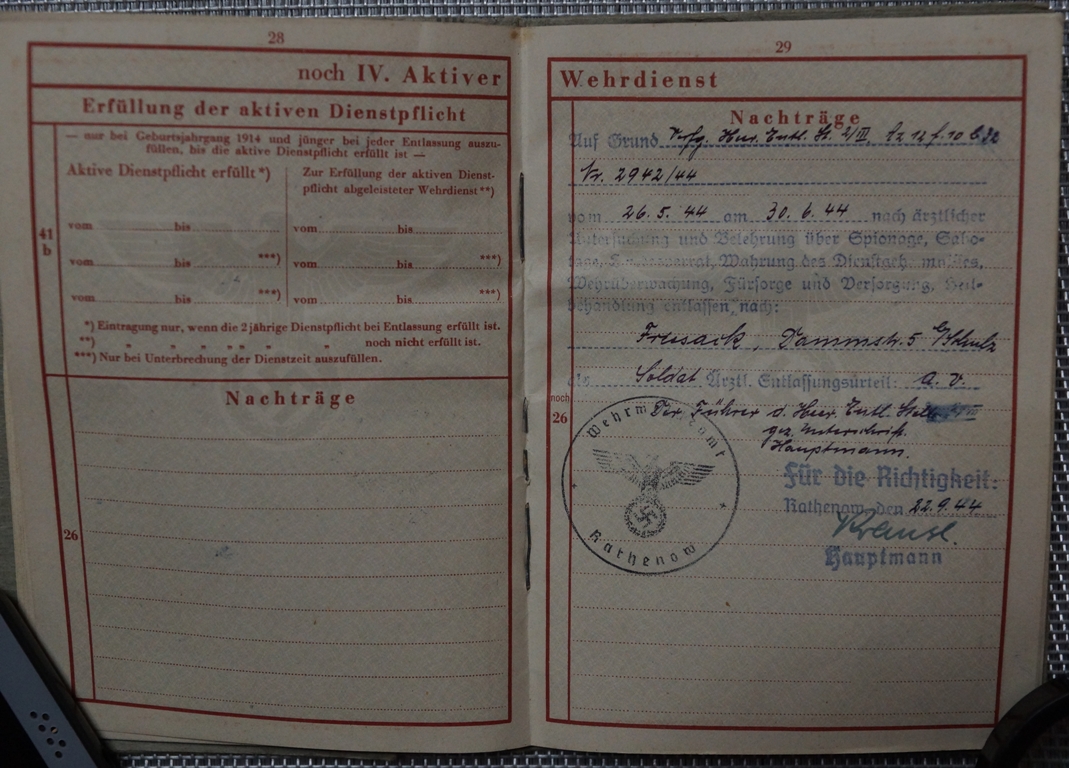 28
noch IV. Aktiver
Erfüllung der aktiven Dienstpflicht
— nur bei Geburtsjahrgang 1914 und jünger bei jeder Entlassung auszu-
füllen, bis die aktive Dienstpflicht erfüllt ist —
41
b
Aktive Dienstpflicht erfüllt*)
vom bis
vom bis ***)
vom bis ***)
Zur Erfüllung der aktiven Dienst-
pflicht abgeleisteter Wehrdienst**)
vom bis
vom bis ***)
vom bis ***)
*) Eintragung nur, wenn die 2 jährige Dienstpflicht bei Entlassung erfüllt ist.
**) „ „ „ „ „ „ noch nicht erfüllt ist.
***) Nur bei Unterbrechung der Dienstzeit auszufüllen.
Nachträge
26
29
Wehrdienst
Nachträge
Auf Grund Verfg. Heer. Entl. St. 2/III, Az 12 f. 10
Nr. 2942/44
vom 26. 5. 44 am 30. 6. 44 nach ärztlicher
Untersuchung und Belehrung über Spionage, Sabo-
tage, Landesverrat, Wahrung des
Wehrüberwachung, Fürsorge und Versorgung, Heil-
behandlung entlassen, nach:
Friesack, Dammstr. 5
als Soldat Ärztl. Entlassungsurteil: a. v.
noch
26
Der Führer d. Heer. Entl. Stelle
gez. Unterschrift
Hauptmann.
Für die Richtigkeit:
Rathenow, den 22. 9. 44
Hauptmann
Rathenow